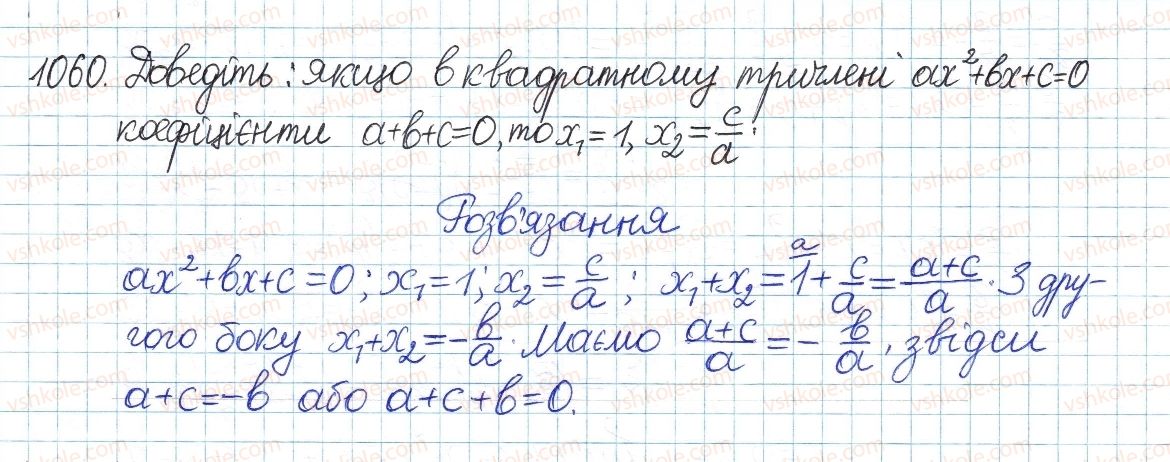 1060. Доведіть: якщо в квадратному тричлені ax²+bx+c=0
коефіцієнти a+b+c=0, то x₁=1, x₂=c/a.
Розв'язання
ax²+bx+c=0; x₁=1; x₂=c/a; x₁+x₂=1+c/a=(a+c)/a. З дру-
гого боку x₁+x₂=-b/a. Маємо (a+c)/a=-b/a, звідси
a+c=-b або a+c+b=0.